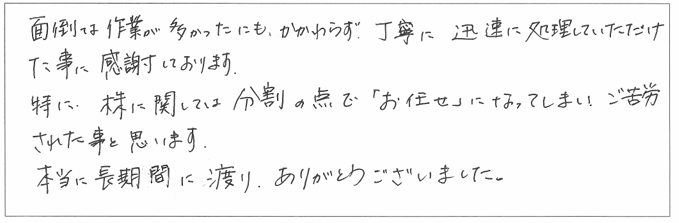 面倒な作業が多かったにも、かかわらず、丁寧に迅速に処理していただけ
た事に感謝しております。
特に、株に関しては分割の点で「お任せ」になってしまい、ご苦労
された事と思います。
本当に長期間に渡り、ありがとうございました。